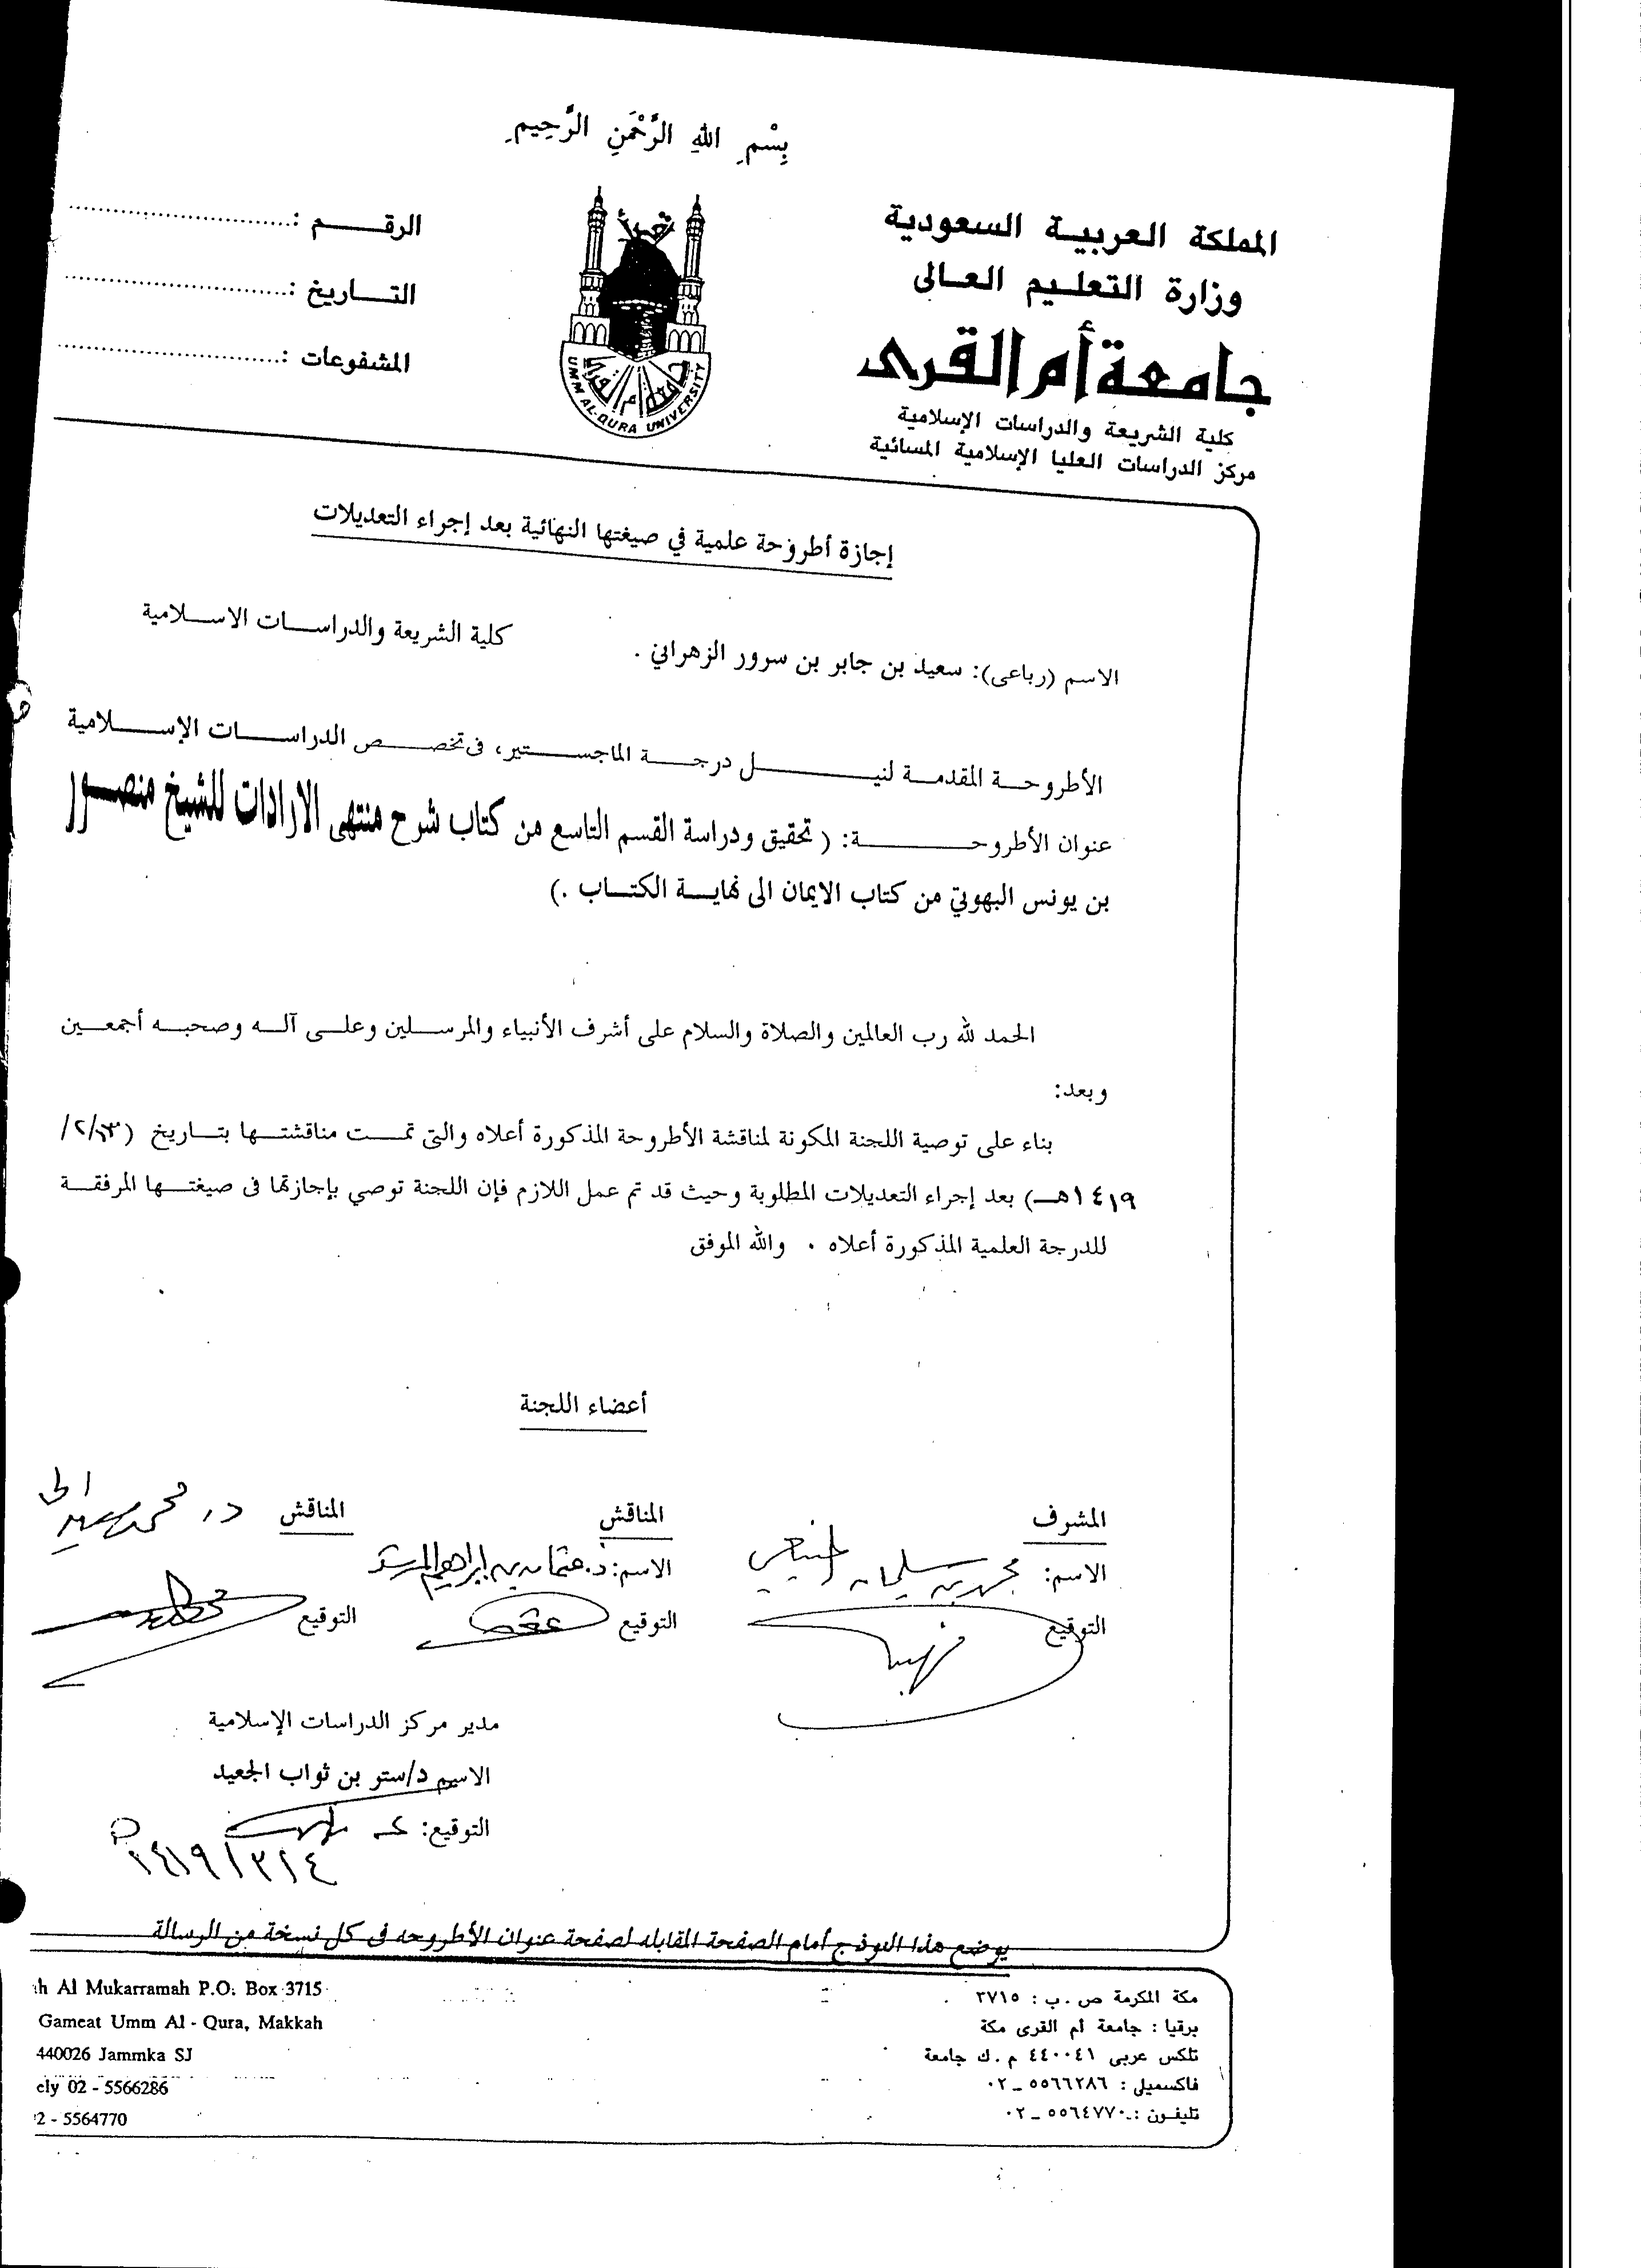 بِسْمِ اللهِ الرَّحْمَنِ الرَّحِيمِ
المملكة العربية السعودية
وزارة التعليم العالى
جامعة أم القرى
كلية الشريعة والدراسات الإسلامية
مركز الدراسات العليا الإسلامية المسائية
الرقم :
التاريخ :
المشفوعات :
جامعة أم القرى
UMM AL-QURA UNIVERSITY
إجازة أطروحة علمية في صيغتها النهائية بعد إجراء التعديلات
الاسم (رباعى): سعيد بن جابر بن سرور الزهراني . كلية الشريعة والدراسات الاسلامية
الأطروحة المقدمة لنيل درجة الماجستير، فى تخصص الدراسات الإسلامية
عنوان الأطروحة: ( تحقيق ودراسة القسم التاسع من كتاب شرح منتهى الارادات للشيخ منصور
بن يونس البهوتي من كتاب الايمان الى نهاية الكتاب .)
الحمد لله رب العالمين والصلاة والسلام على أشرف الأنبياء والمرسلين وعلى آله وصحبه أجمعين
وبعد:
بناء على توصية اللجنة المكونة لمناقشة الأطروحة المذكورة أعلاه والتى تمت مناقشتها بتاريخ ( /٢/
١٤١٩هـ) بعد إجراء التعديلات المطلوبة وحيث قد تم عمل اللازم فإن اللجنة توصي بإجازتها فى صيغتها المرفقة
للدرجة العلمية المذكورة أعلاه . والله الموفق
أعضاء اللجنة
المشرف
الاسم: محمد بن سليمان المنيعي
التوقيع
المناقش
الاسم: د. عثمان بن إبراهيم المرشد
التوقيع
المناقش د. محمد
التوقيع
مدير مركز الدراسات الإسلامية
الاسم د/ستر بن ثواب الجعيد
التوقيع:
١٤١٩/٣/٤
يوضع هذا النموذج أمام الصفحة المقابله لصفحة عنوان الأطروحه فى كل نسخة من الرسالة
مكة المكرمة ص . ب : ٣٧١٥
برقيا : جامعة أم القرى مكة
تلكس عربى ٤٤٠٠٤١ م . ك جامعة
فاكسميلى : ٥٥٦٦٢٨٦ _ ٠٢
تليفون : ٥٥٦٤٧٧٠ _ ٠٢
h Al Mukarramah P.O. Box 3715
Gameat Umm Al - Qura, Makkah
440026 Jammka SJ
ely 02 - 5566286
2 - 5564770